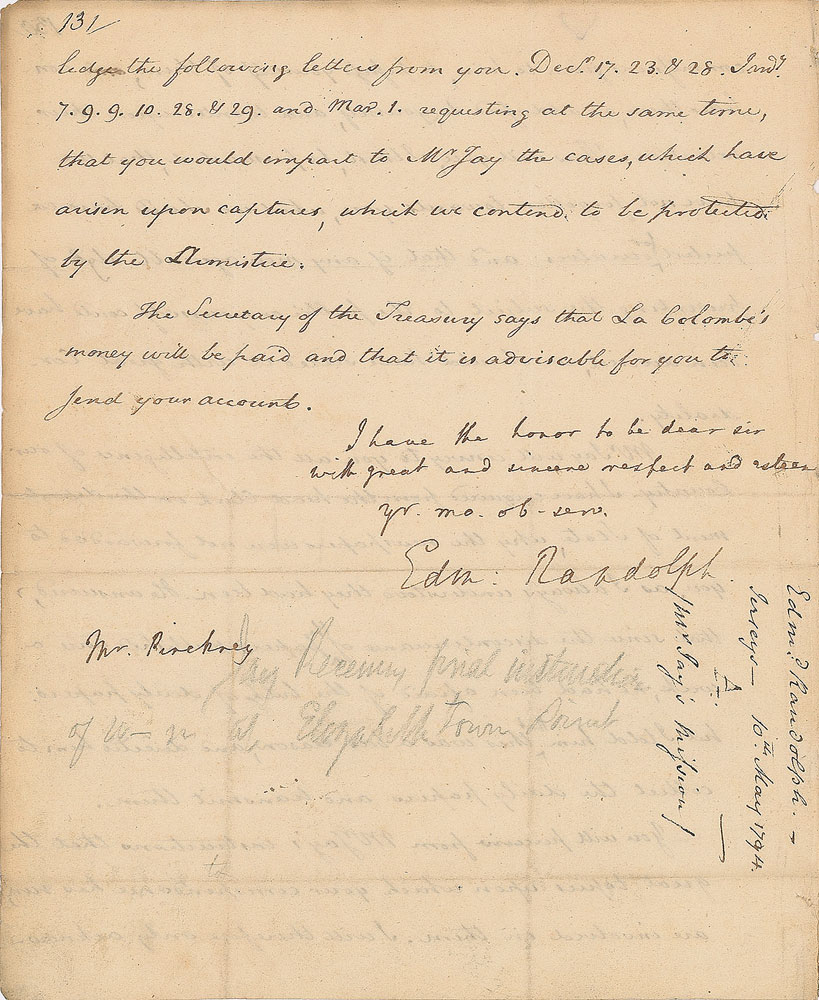 131/
ledge the following letters from you. Dec.r 17. 23. & 28. Jan.y
7. 9. 9. 10. 28. & 29. and Mar. 1. requesting at the same time,
that you would impart to Mr Jay the cases, which have
arisen upon captures, which we contend to be protected
by the Armistice.
The Secretary of the Treasury says that La Colombe's
money will be paid and that it is advisable for you to
send your account.
I have the honor to be dear sir
with great and sincere respect and esteem
yr. mo. ob. serv.
Edm: Randolph.
Mr. Pinckney
Jay Receiving final instructions
of W—n at Elizabeth Town Point
Edm.d Randolph. —
Jerseys — 10th May 1794.
/Mr. Jay's Mission/